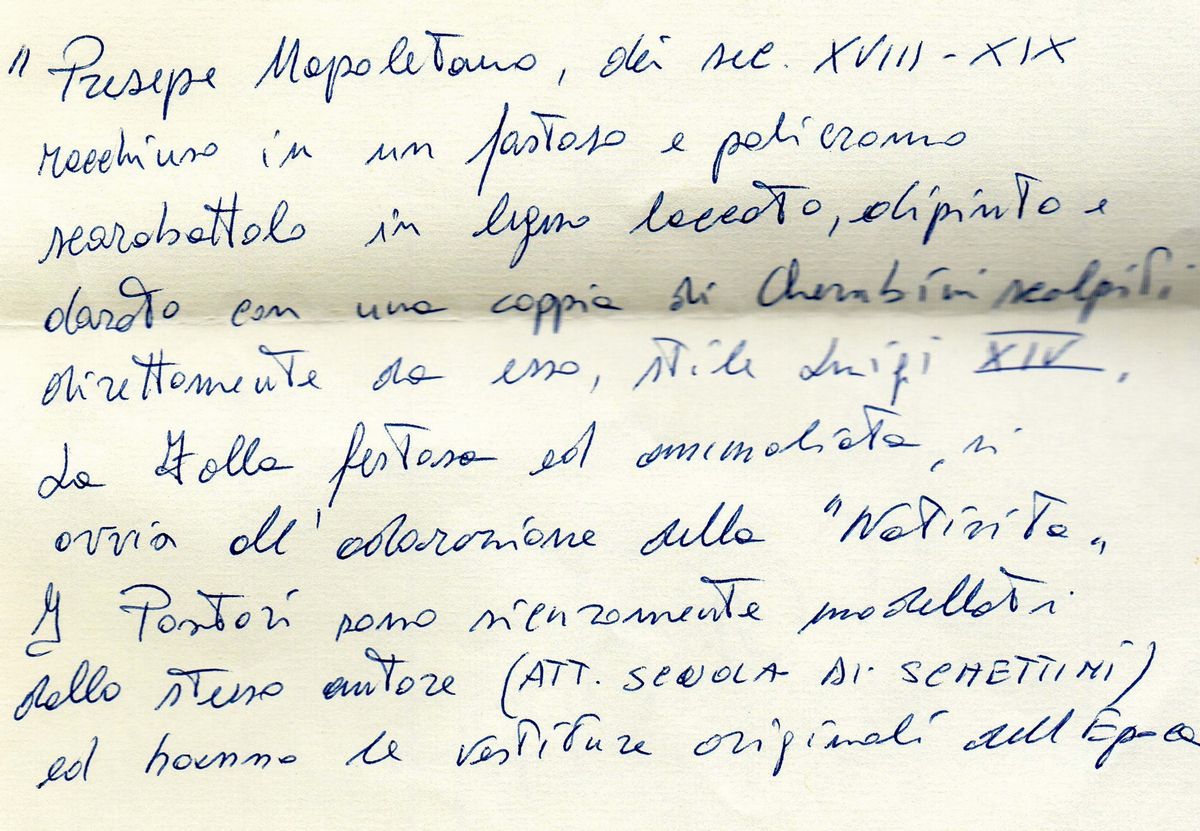 " Presepe Napoletano, dei sec. XVIII - XIX
racchiuso in un fastoso e policromo
scarabattolo in legno laccato, dipinto e
dorato con una coppia di Cherubini scolpiti
direttamente da esso, stile Luigi XIV.
La folla festosa ed ammaliata, si
avvia all'adorazione della "Natività"
I Pastori sono sicuramente modellati
dallo stesso autore (ATT. SCUOLA DI SCHETTINI)
ed hanno le vestiture originali dell'Epoca